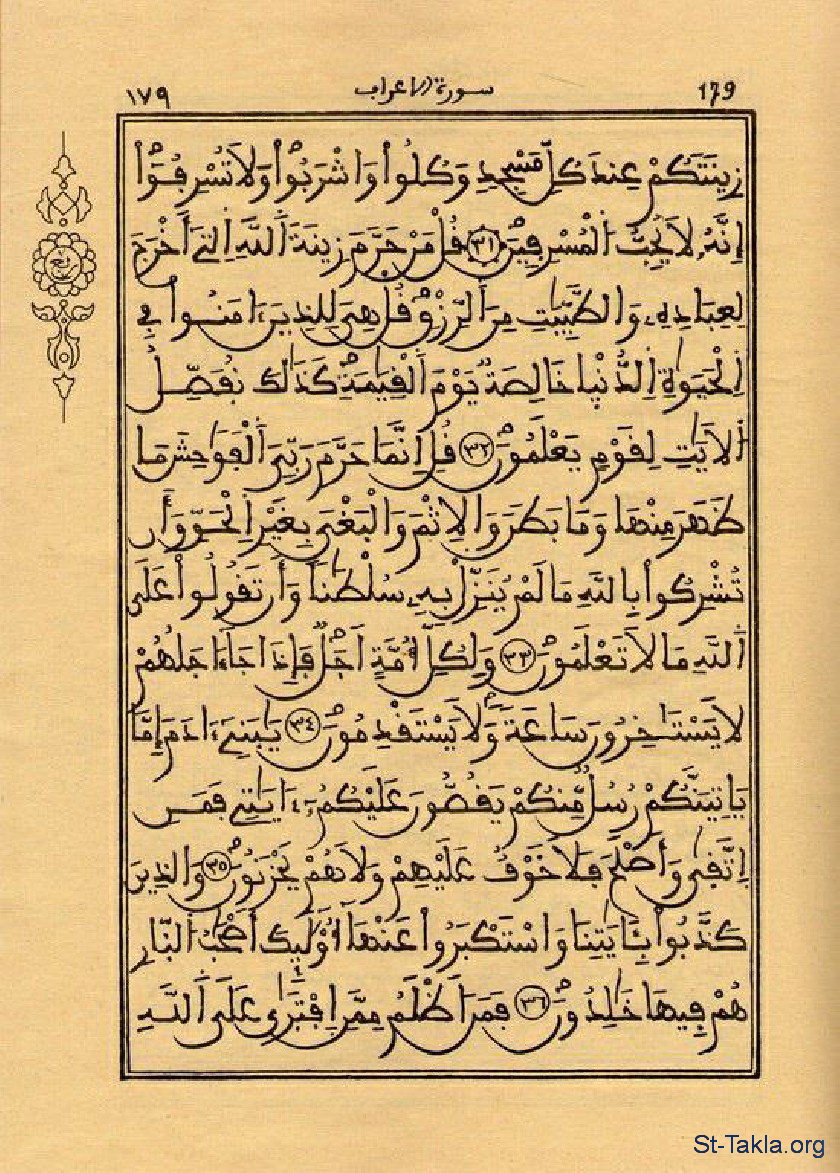 ١٧٩ سورة الاعراب 179
زِينَتَكُمْ عِندَ كُلِّ مَسْجِدٍ وَكُلُواْ وَاشْرَبُواْ وَلَا تُسْرِفُوٓاْ
إِنَّهُۥ لَا يُحِبُّ الْمُسْرِفِينَ ٣١ قُلْ مَنْ حَرَّمَ زِينَةَ اَللَّهِ اِلتِےٓ أَخْرَجَ
لِعِبَادِهِۦ وَالطَّيِّبَٰتِ مِنَ اَلرِّزْقِ قُلْ هِيَ لِلذِينَ ءَامَنُواْ فِے
اِلْحَيَوٰةِ اِلدُّنْيَا خَالِصَةٌ يَوْمَ اَلْقِيَٰمَةِ كَذَٰلِكَ نُفَصِّلُ
اُلَايَٰتِ لِقَوْمٍ يَعْلَمُونَ ٣٢ قُلِ اِنَّمَا حَرَّمَ رَبِّيَ اَلْفَوَٰحِشَ مَا
ظَهَرَ مِنْهَا وَمَا بَطَنَ وَالِاثْمَ وَالْبَغْيَ بِغَيْرِ اِلْحَقِّ وَأَن
تُشْرِكُواْ بِاللَّهِ مَا لَمْ يُنَزِّلْ بِهِۦ سُلْطَٰناً وَأَن تَقُولُواْ عَلَى
اَللَّهِ مَا لَا تَعْلَمُونَ ٣٣ وَلِكُلِّ أُمَّةٍ اَجَلٌ فَإِذَا جَآءَ اجَلُهُمْ
لَا يَسْتَاخِرُونَ سَاعَةً وَلَا يَسْتَقْدِمُونَ ٣٤ يَٰبَنِےٓ ءَادَمَ إِمَّا
يَاتِيَنَّكُمْ رُسُلٌ مِّنكُمْ يَقُصُّونَ عَلَيْكُمُۥٓ ءَايَٰتِے فَمَنِ
اِتَّقَىٰ وَأَصْلَحَ فَلَا خَوْفٌ عَلَيْهِمْ وَلَا هُمْ يَحْزَنُونَ ٣٥ وَالذِينَ
كَذَّبُواْ بِـَٔايَٰتِنَا وَاسْتَكْبَرُواْ عَنْهَآ أُوْلَٰٓئِكَ أَصْحَٰبُ النّ۪ارِ
هُمْ فِيهَا خَٰلِدُونَ ٣٦ فَمَنَ اَظْلَمُ مِمَّنِ اِفْتَرَىٰ عَلَى اَللَّهِ
St-Takla.org